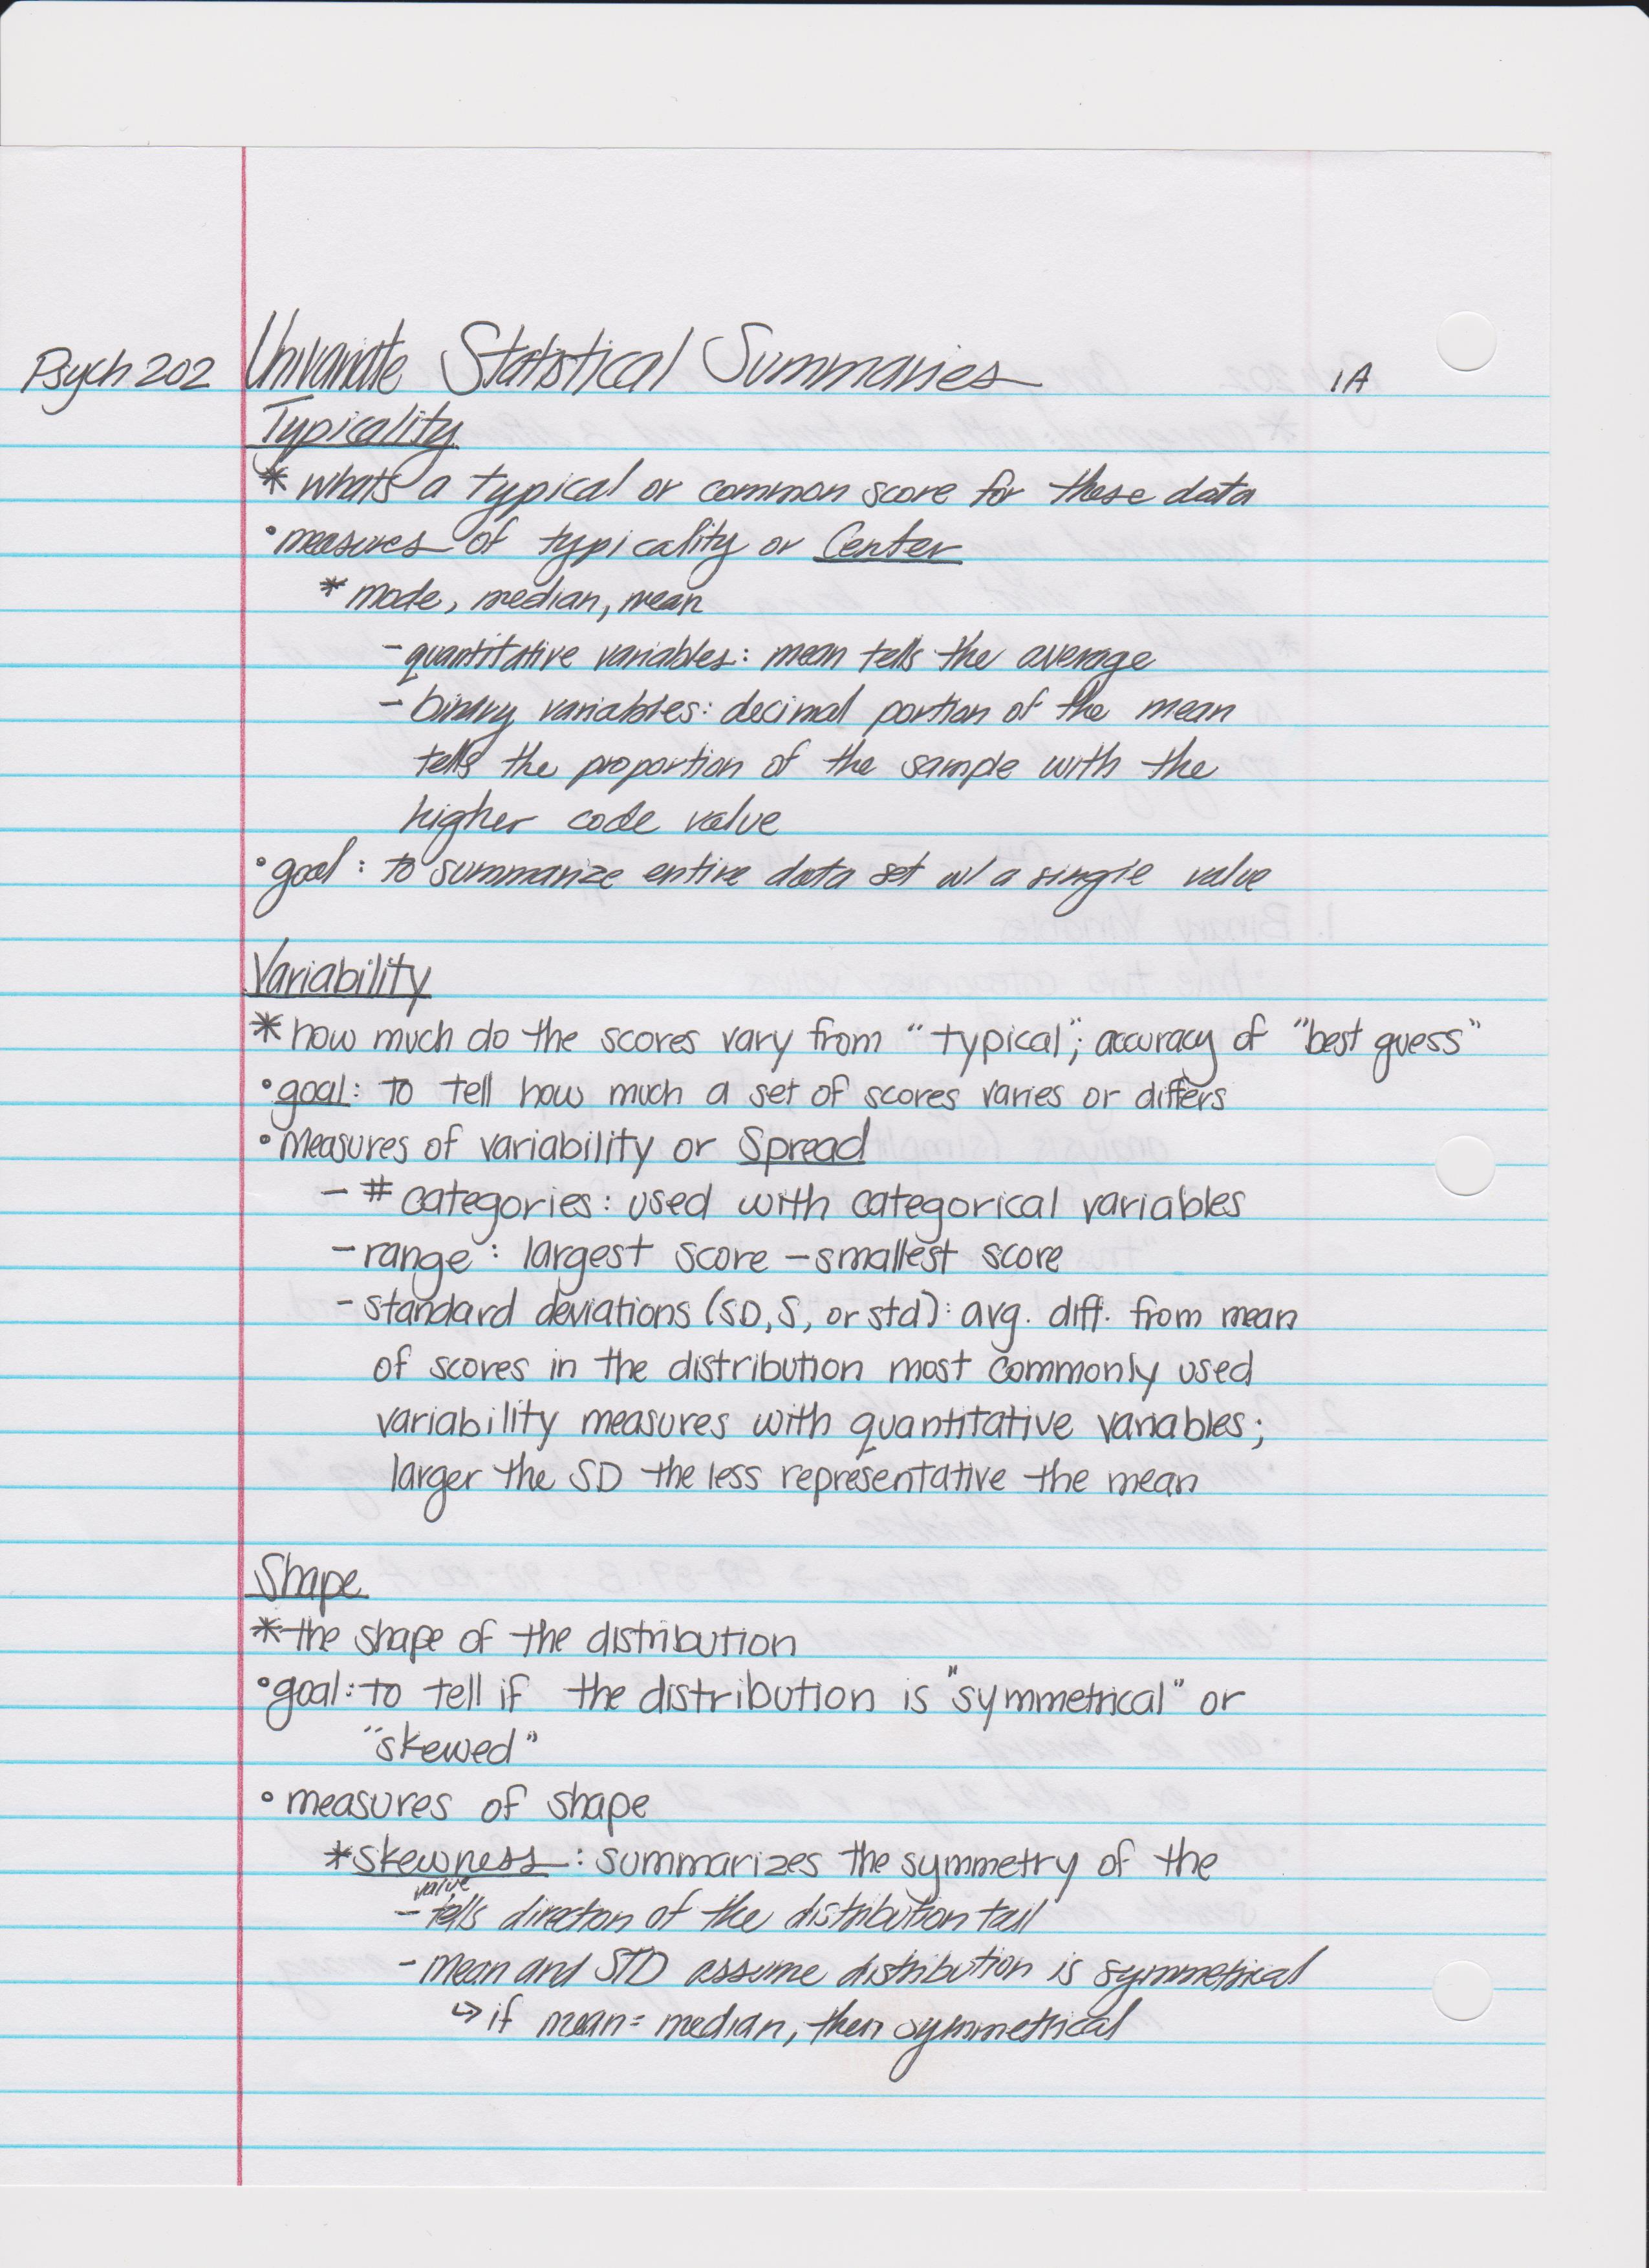 Psych 202 Univariate Statistical Summaries 1A
Typicality
* whats a typical or common score for these data
• measures of typicality or Center
* mode, median, mean
- quantitative variables: mean tells the average
- binary variables: decimal portion of the mean
tells the proportion of the sample with the
higher code value
• goal: to summarize entire data set w/ a single value
Variability
* how much do the scores vary from "typical"; accuracy of "best guess"
• goal: to tell how much a set of scores varies or differs
• Measures of variability or Spread
- # categories: used with categorical variables
- range: largest score - smallest score
- standard deviations (SD, S, or std): avg. diff. from mean
of scores in the distribution most commonly used
variability measures with quantitative variables;
larger the SD the less representative the mean
Shape
* the shape of the distribution
• goal: to tell if the distribution is "symmetrical" or
"skewed"
• measures of shape
* skewness: summarizes the symmetry of the
value
- tells direction of the distribution tail
- mean and STD assume distribution is symmetrical
↳ if mean = median, then symmetrical